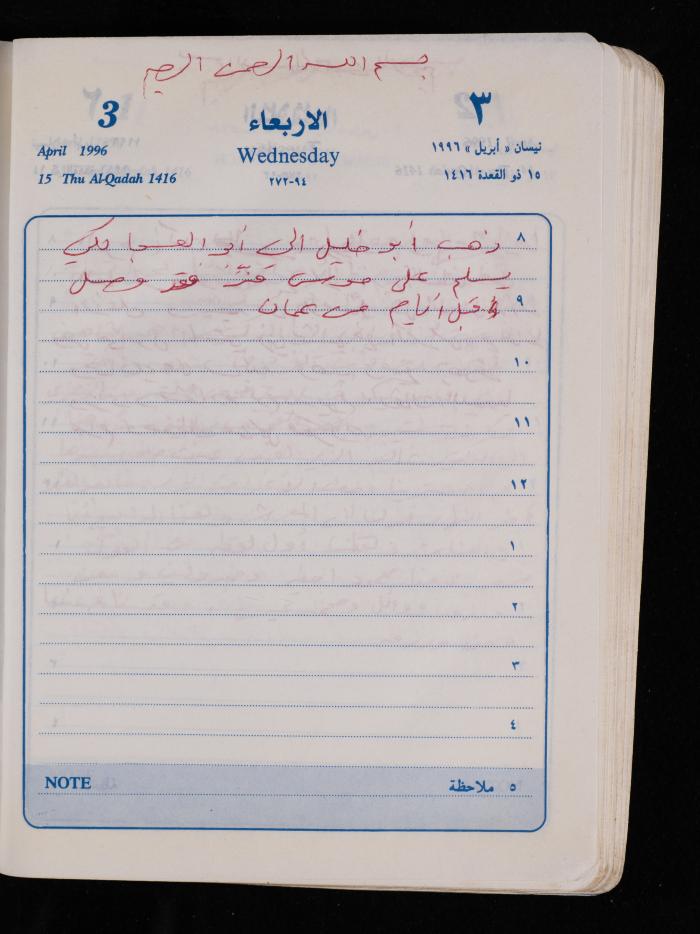 بسم الله الرحمن الرحيم
3
الاربعاء
٣
April 1996
Wednesday
نيسان « أبريل » ١٩٩٦
15 Thu Al-Qadah 1416
٩٤-٢٧٢
١٥ ذو القعدة ١٤١٦
٨ ذهب أبو خليل الى أبو لكي
يسلم على فقد وصل
٩ قبل أيام من عمان
١٠
١١
١٢
١
٢
٣
٤
NOTE
٥ ملاحظة